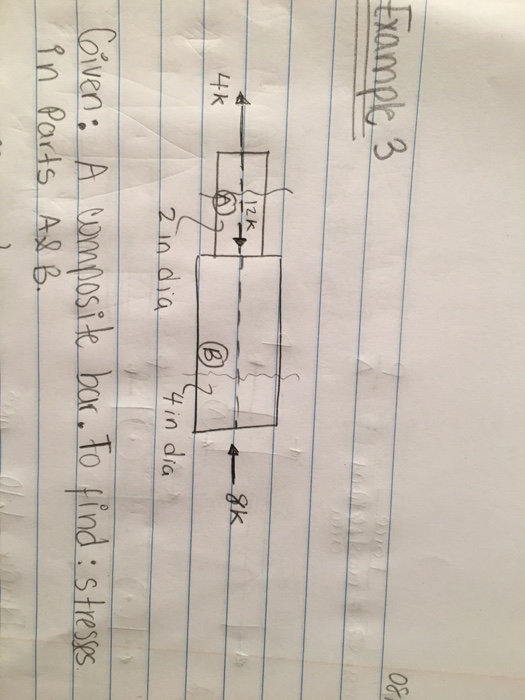 Example 3
4k
12k
8k
A
B
2 in dia
4 in dia
Given: A composite bar. To find: stresses
in parts A&B.